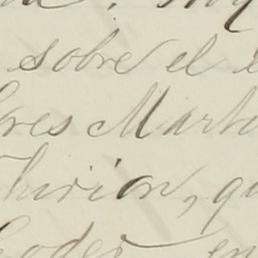 sobre el
res Marti
Thirion, qu
oder en